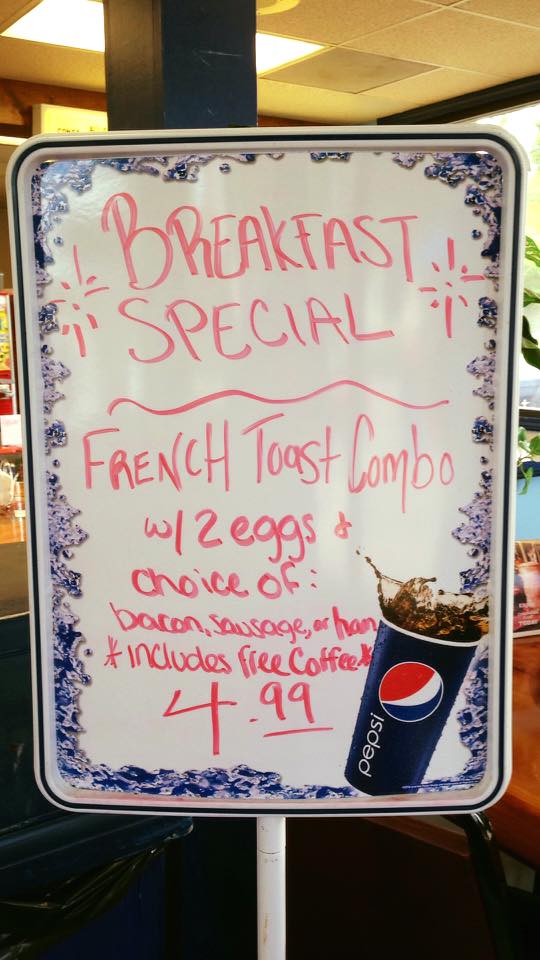 BREAKFAST
SPECIAL
FRENCH Toast Combo
w/ 2 eggs &
choice of:
bacon, sausage, or ham
*includes free Coffee*
4.99
pepsi